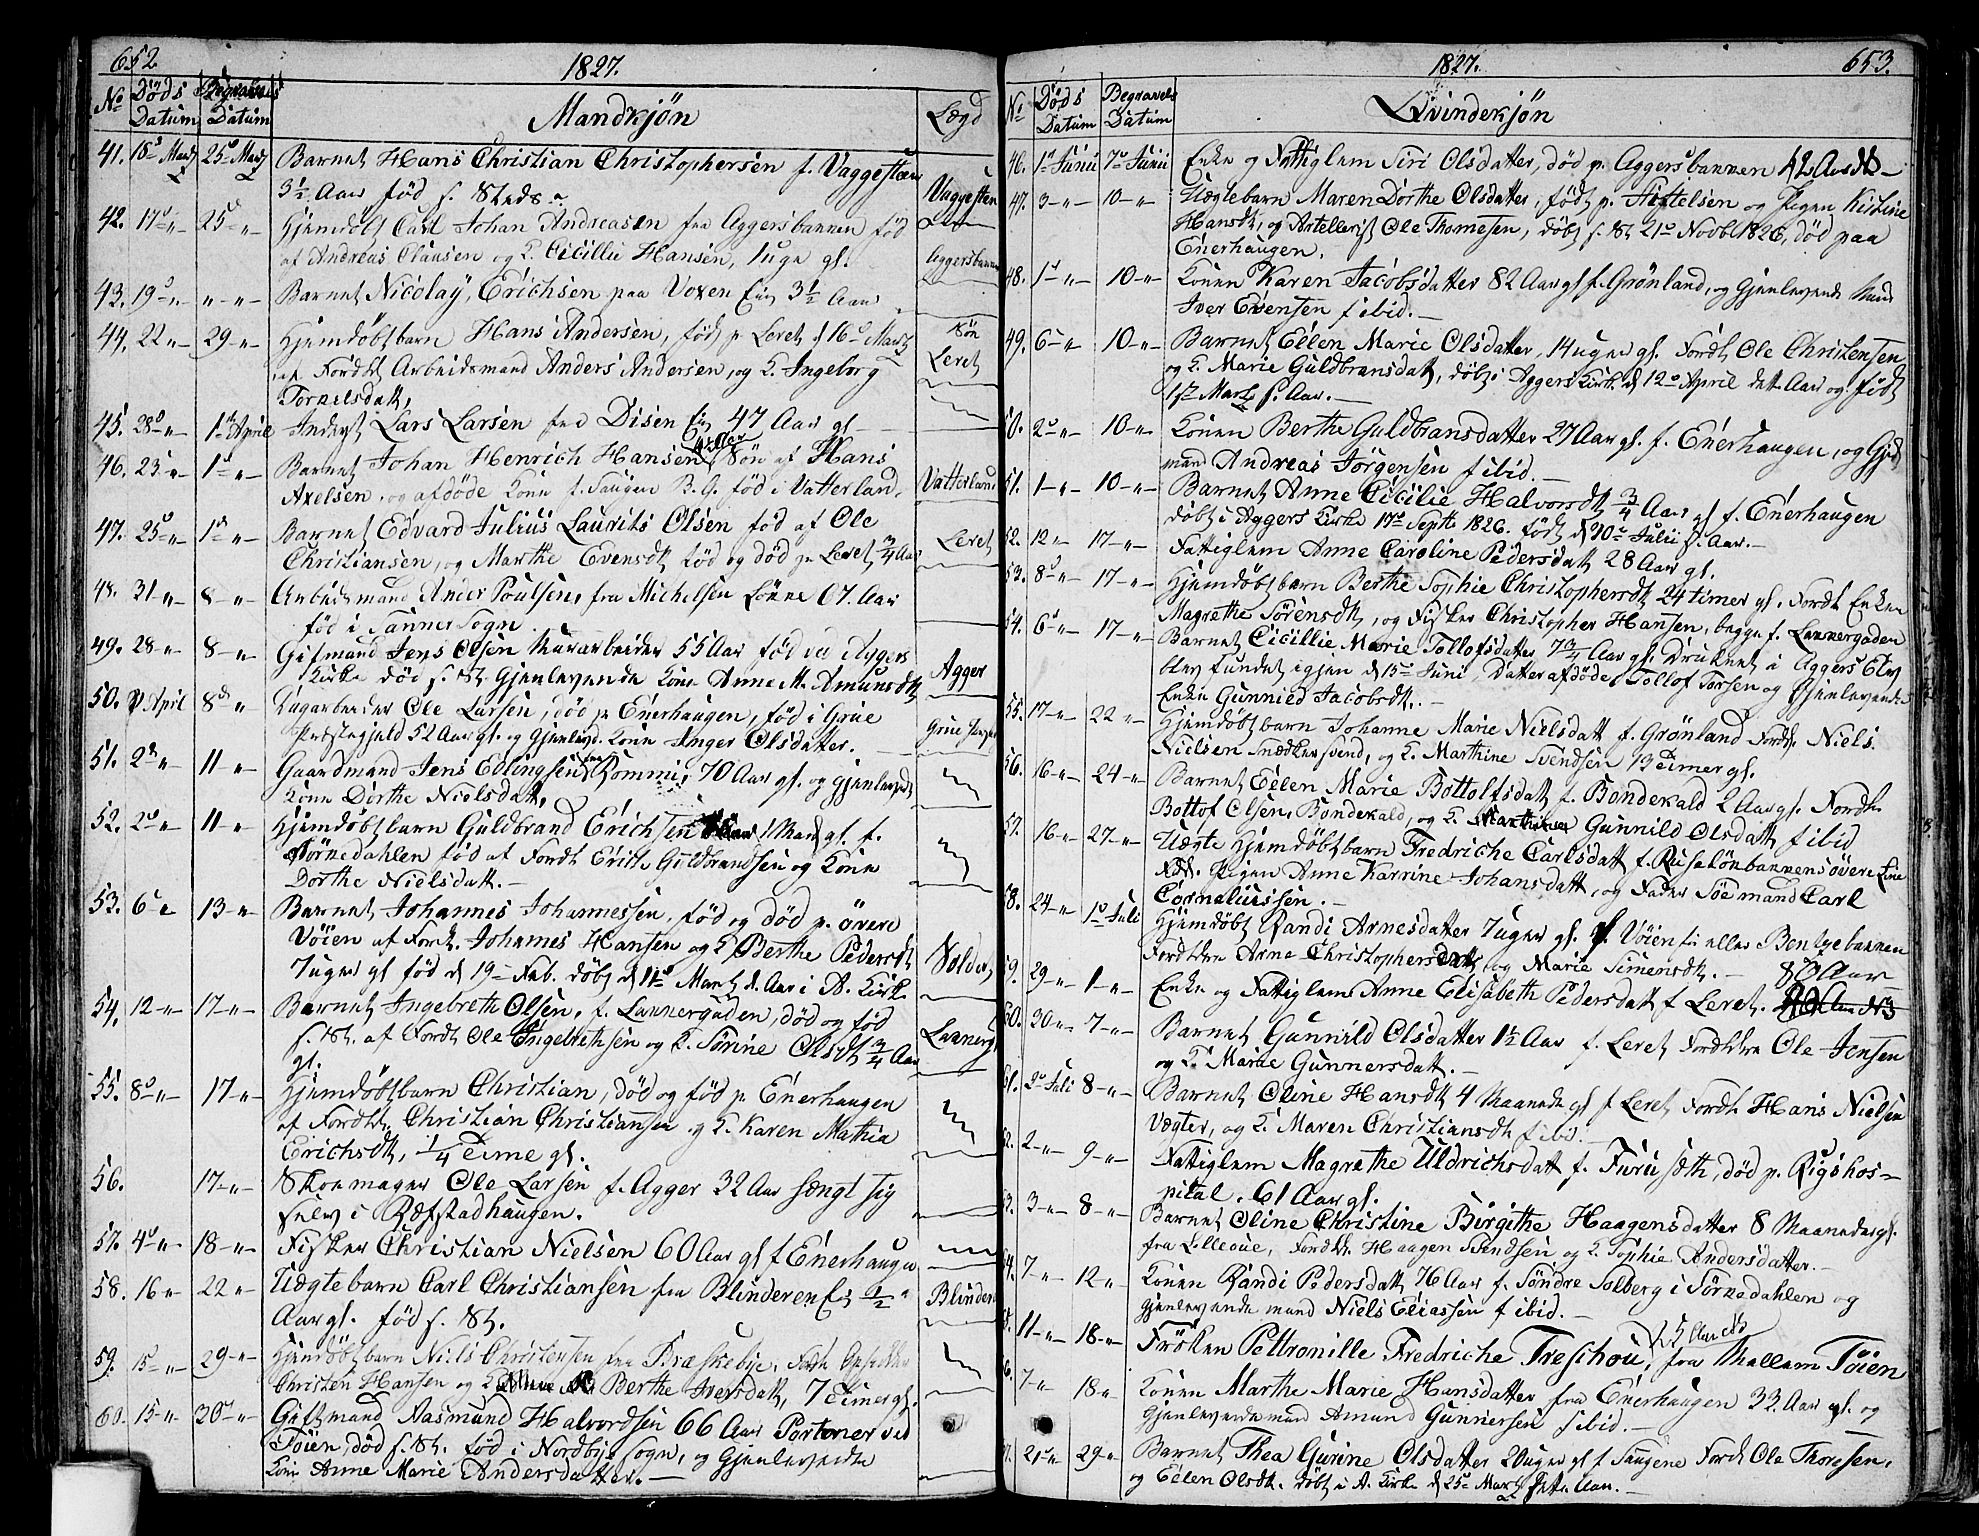 652
1827.
No
Döds Datum
Begravelses Datum
Mandkjön
Lægd
41. 18d Martz 25d Martz Barnet Hans Christian Christophersen f. Vaggesteen
3½ Aar fød s. Steds
Vaggesteen
42. 17d -"- 25d -"- Hjemdöbt Carl Johan Andreasen fra Aggersbannen fød
af Andreas Clausen og K. Cicillie Hansen, 1 uge gl.
Aggersbannen
43. 19d -"- -"- Barnet Nicolay Erichsen paa Voxen Eie 3½ Aar
44. 22 -"- 29 -"- Hjemdöbtbarn Hans Andersen, fød p. Leret d 16d Martz
af Fordt Arbeidsmand Anders Andersen, og K. Ingeborg
Torkelsdatt.
Søn
Leret
45. 28d -"- 1d April Inderst Lars Larsen fra Disen Eie 47 Aar gl
46. 23 -"- 1d -"- Barnet Johan Henrich Hansen Søn af Hans
Axelsen, og afdöde Kone f. Saugen B.G. fød i Vatterland.
Vatterland
47. 25d -"- 1d -"- Barnet Edvard Julius Laurits Olsen fød af Ole
Christiansen, og Marthe Evensdt fød og død p. Leret ¾ Aar
Leret
48. 31 -"- 8 -"- Arbeidsmand Anders Poulsen, fra Michelsen Lönne 67. Aar
fød i Sanner Sogn
49. 28 -"- 8 -"- Gifmand Jens Olsen Murarbeider 55 Aar fød ved Aggers
Kirke død s. St. Gjenlevende Kone Anne M. Amunsdtt
Agger
50. 1 April 8d -" Dagarbeider Ole Larsen, død p. Enerhaugen, fød i Grue
Præstegjeld 52 Aar gl. og Gjenlevd. Kone Inger Olsdatter.
51. 2d -"- 11 -"- Gaardmand Jens Edlingsen Rommi, 70 Aar gl. og gjenlevende
Kone Dorthe Nielsdatt.
52. 2d -"- 11 -"- Hjemdöbtbarn Guldbrand Erichsen 1 Maand gl. f.
Sörkedahlen fød af Fordt Erich Guldbrandsen og Kone
Dorthe Nielsdatt. -
53. 6d -"- 13 -"- Barnet Johannes Johannessen, fød og død p. övere
Vöien af Fordt. Johannes Hansen og K. Berthe Pedersdt
7 uger gl fød d 19 Feb. döbt d 11d Martz d. Aar i A. Kirke
54. 12 -"- 17 -"- Barnet Ingebreth Olsen, f. Lannergaden, død og fød
s. St. af Fordt Ole Ingebrethsen og K. Sørine Olsdt ¾ Aar
gl.
55. 8d -"- 17 -"- Hjemdöbtbarn Christian, död og fød p. Enerhaugen
af Fordt. Christian Christiansen og K. Karen Mathia
Erichsdt, ¼ Time gl.
56. 17 -"- Skomager Ole Larsen f. Agger 32 Aar hængt sig
selv i Refstadhaugen.
57. 4d -"- 18 -"- Fisker Christian Nielsen 60 Aar gl f Enerhaugen
58. 16 -"- 22 -"- Uægtebarn Carl Christiansen fra Blinderen Eie ½
Aar gl. fød s. St.
Blindern
59. 15 -"- 29 -"- Hjemdöbtbarn Niels Christensen fra Bræskebye, Fordt
Christen Hansen og K. Berthe Iversdatt, 7 Timer gl.
60. 15 -"- 30 -"- Giftmand Aasmund Halvordsen 66 Aar Portener ved
Töien, død s. St. fød i Nordbye Sogn, og Gjenlevende
Kone Anne Marie Andersdatter. -
1827.
653.
No
Döds Datum
Begravels Datum
Qvindekjön
46. 1d Junii 7d Junii Enke og Fattiglem Siri Olsdatter, død p. Aggersbannen 42 Aar
47. 3 -"- 10 -"- Uægtebarn Maren Dorthe Olsdatter, född p. Stiftelsen og Pigen Kistine
Hansdt, og Artellerist Ole Thomesen, döbt s. St 21d Novbr 1826, død paa
Enerhaugen.
48. 1d -"- 10 -"- Konen Karen Jacobsdatter 82 Aar gl f. Grönland, og Gjenlevende Mand
Iver Evensen f ibid. -
49. 6 -"- 10 -"- Barnet Ellen Marie Olsdatter, 14 uger gl. Fordt Ole Christensen
og K. Marie Guldbransdatt, döbt i Aggers Kirke d 12d April dette Aar og född
1ste Martz s. Aar. -
50. 2d -"- 10 -"- Konen Berthe Guldbransdatter 27 Aar gl. f. Enerhaugen, og Gjl
mand Andreas Jörgensen f ibid. -
51. 1 -"- 10 -"- Barnet Anne Cicilie Halvorsdt ¾ Aar gl f. Enerhaugen
döbt i Aggers Kirke 17d Septb 1826. født d 10d Julii s. Aar. -
52. 12 -"- 17 -"- Fattiglem Anne Caroline Pedersdatt 28 Aar gl.
53. 8d -"- 17 -"- Hjemdöbtbarn Berthe Sophie Christophersdt 24 timer gl. Fordt Enken
Magrethe Sörensdt, og Fisker Christopher Hansen, begge f. Lannergaden
54. 6d -"- 17 -"- Barnet Cicillie Marie Tollofsdatter 7¾ Aar gl. Druknet i Aggers Elv
blev fundet igjen d 15d Juni, Datter afdöde Tollof Torsen og Gjenlevende
Enke Gunnild Jacobsdt. -
55. 17 -"- 22 -"- Hjemdöbtbarn Johanne Marie Nielsdatt f. Grönland Fordt. Niels
Nielsen Snedkersvend, og K. Marthine Svendsen 13 Timer gl.
56. 16 -"- 24 -"- Barnet Ellen Marie Bottolfsdatt f. Bondekald 2 Aar gl. Fordt
Bottof Olsen, Bondekald, og K. Gunnild Olsdatt f ibid
57. 16 -"- 27 -"- Uægte Hjemdöbtbarn Fredriche Carlsdatt f. Ruseløkbannens övere Line
Fordt. Pigen Anne Karrine Johansdatt, og Fader Söemand Carl
Corneliussen. -
58. 24 -"- 1d Juli Hjemdöbt Randi Arnesdatter 7 uger gl. f. Vöien eller Bentzebannen
Fordttre Arne Christophersen og Marie Simensdt. -
59. 29 -"- 1 -"- Enke og Fattiglem Anne Elisabeth Pedersdatt f Leret. 80 Aar
60. 30 -"- 7 -"- Barnet Gunnild Olsdatter 1½ Aar f. Leret Fordttre Ole Jensen
og K. Marie Gunnersdatt. -
61. 2d Juli 8 -"- Barnet Oline Hansdt 4 Maaneder gl f Leret Fordt. Hans Nielsen
Vægter, og K. Maren Christiansdt f ibid.
62. 2 -"- 9 -"- Fattiglem Magrethe Uldrichsdatt f. Furuseth, död p. Rigshos-
pital. 61 Aar gl.
63. 3 -"- 8 -"- Barnet Oline Christine Birgithe Haagensdatter 8 Maaneder gl.
fra Lilleoue, Fordtte Haagen Svendsen og K. Sophie Andersdatter. -
64. 7 -"- 12 -"- Konen Randi Pedersdatt 76 Aar f. Söndre Solberg i Sörkedahlen og
gjenlevende mand Niels Eliassen f ibid. -
11 -"- 18 -"- Fröken Pettronille Fredriche Treschou, fra Mellem Töien
25 Aar
7 -"- 18 -"- Konen Marthe Marie Hansdatter fra Enerhaugen 33 Aar gl. og
Gjenlevende mand Amund Gunnersen f ibid. -
21d -"- 29 -"- Barnet Thea Gurine Olsdatter 20 uger gl f Saugene Fordt Ole Thoresen,
og Ellen Olsdt. döbt i A. Kirke d 25d Martz dette Aar. -